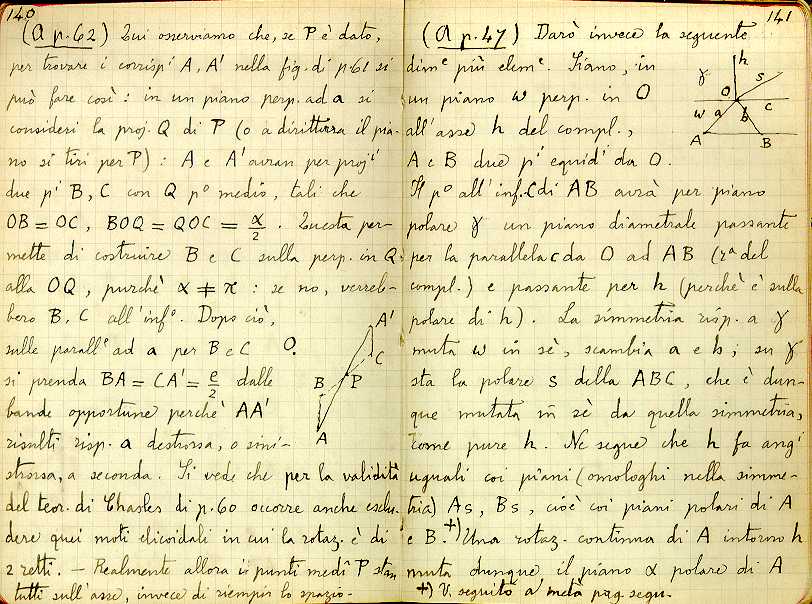 140
(A p. 62) Qui osserviamo che, se P è dato,
per trovare i corrispi A, A' nella fig. di p. 61 si
può fare così: in un piano perp. ad a si
consideri la proj. Q di P (o a dirittura il pia-
no si tiri per P): A e A' avran per proji
due pi B, C con Q po medio, tali che
OB = OC, BOQ = QOC = α/2. Questa per-
mette di costruire B e C sulla perp. in Q
alla OQ, purchè α ≠ π: se no, verreb-
bero B, C all'info. Dopo ciò,
sulle paralle ad a per B e C
si prenda BA = CA' = e/2 dalle
bande opportune perchè AA'
risulti risp. a destrorsa, o sini-
strorsa, a seconda. Si vede che per la validità
del teor. di Chasles di p. 60 occorre anche esclu-
dere quei moti elicoidali in cui la rotaz. è di
2 retti. — Realmente allora i punti medî P stan
tutti sull'asse, invece di riempir lo spazio.
O.
A'
C
B
P
A
141
(A p. 47) Darò invece la seguente
dime più eleme. Siano, in
un piano ω perp. in O
all'asse h del compl.,
A e B due pi equidi da O.
Il po all'inf. C di AB avrà per piano
polare γ un piano diametrale passante
per la parallela c da O ad AB (ra del
compl.) e passante per h (perchè è sulla
polare di h). La simmetria risp. a γ
muta ω in sè, scambia a e b; su γ
sta la polare s della ABC, che è dun-
que mutata in sè da quella simmetria,
come pure h. Ne segue che h fa angi
uguali coi piani (omologhi nella simme-
tria) As, Bs, cioè coi piani polari di A
e B. +) Una rotaz. continua di A intorno h
muta dunque il piano α polare di A
+) V. seguito a metà pag. segu.
h
γ
s
O
c
ω
a
b
A
B